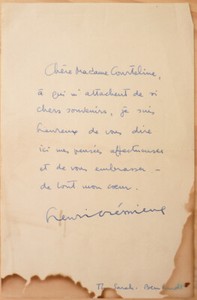 Chère Madame Courteline,
à qui m'attachent de si
chers souvenirs, je suis
heureux de vous dire
ici mes pensées affectueuses
et de vous embrasser
de tout mon cœur.
Henri Crémieux
Th. Sarah-Bernhardt